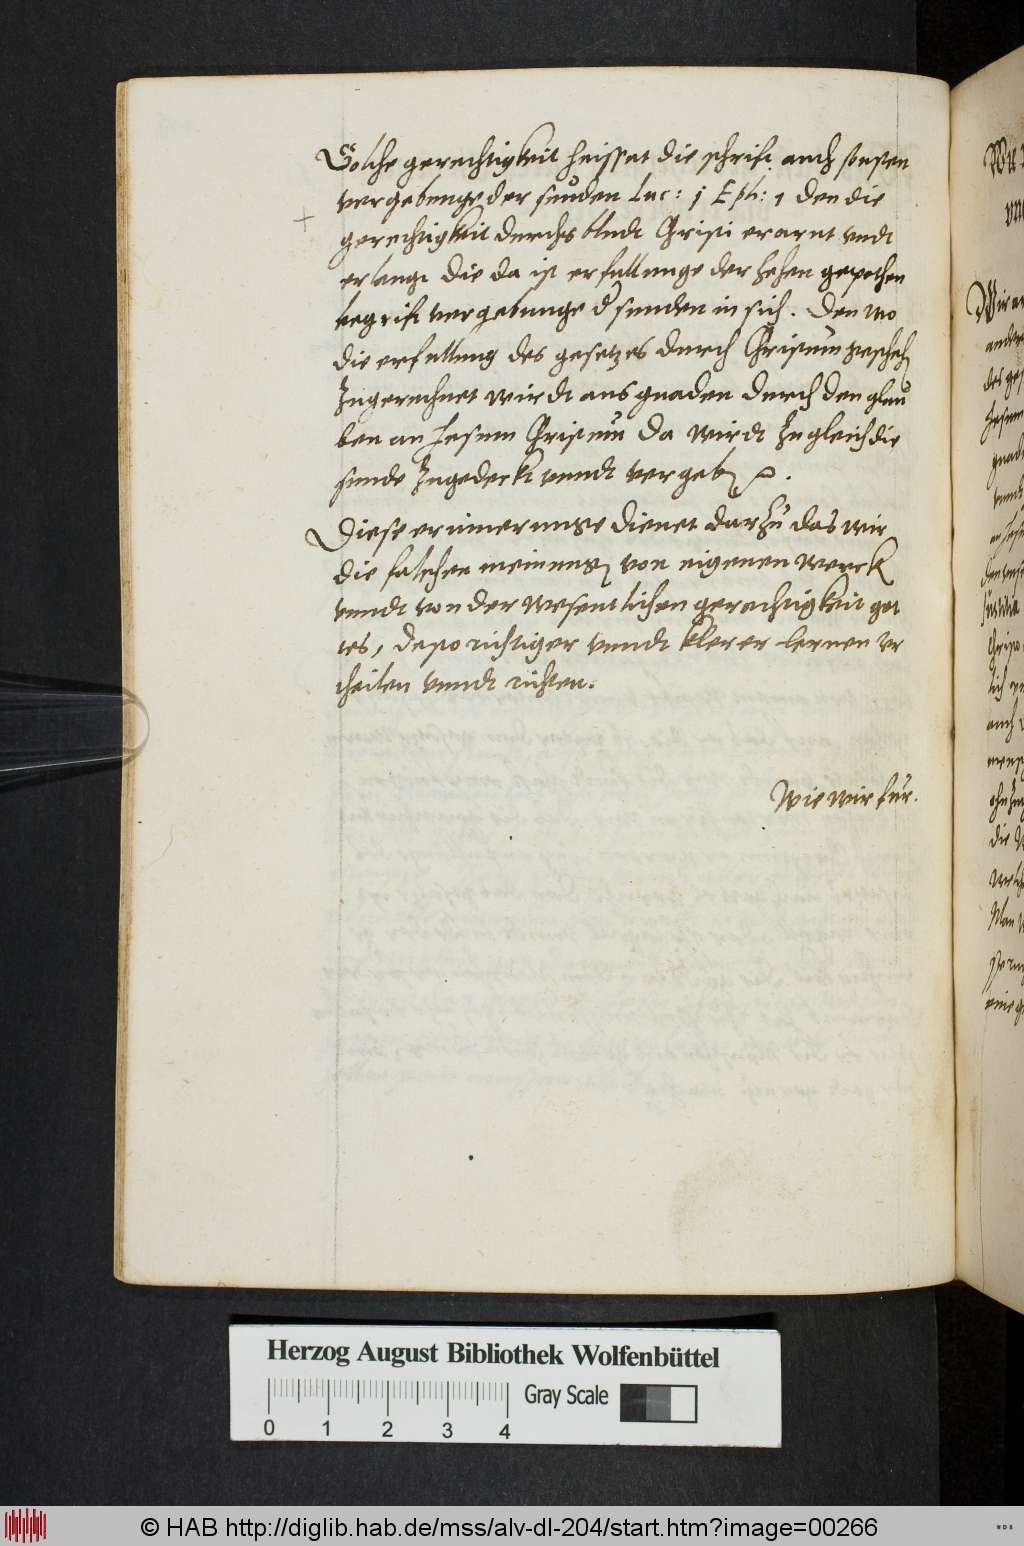 Solche gerechtigkeit heisset die schrift auch sonsten
vergebunge der sunden Luc: j Eph: 1 den die
gerechtigkeit durchs bludt Christi erarnt undt
erlangt die da ist erfullunge der hehen gepothen
begrift vergebunge d sunden in sich. Den wo
die erfullung des gesetzes durch Christum gescheh
Zugerechnet wirdt aus gnaden durch den glau
ben an Jesum Christum da wirdt Zugleich die
sunde Zugedeckt vundt vergeb
Diese erinnerunge dienet darzu das wir
die falschen meinung von eigenen werck
vundt von der wesentlichen gerechtigkeit got
tes, desto richtiger vundt klerer lernen ur
theilen vundt richten.
Wie wir fur.
Herzog August Bibliothek Wolfenbüttel
Gray Scale
0 1 2 3 4
© HAB http://diglib.hab.de/mss/alv-dl-204/start.htm?image=00266